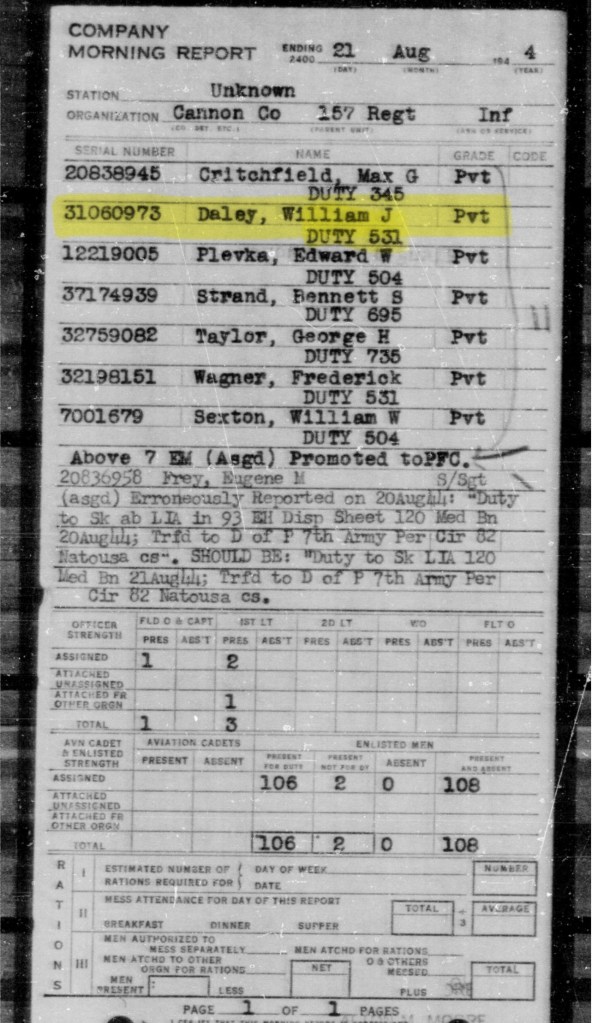 COMPANY
MORNING REPORT ENDING 2400 21 Aug 194 4
(DAY) (MONTH) (YEAR)
STATION Unknown
ORGANIZATION Cannon Co 157 Regt Inf
SERIAL NUMBER NAME GRADE CODE
20838945 Critchfield, Max G Pvt
DUTY 345
31060973 Daley, William J Pvt
DUTY 531
12219005 Plevka, Edward W Pvt
DUTY 504
37174939 Strand, Bennett S Pvt
DUTY 695
32759082 Taylor, George H Pvt
DUTY 735
32198151 Wagner, Frederick Pvt
DUTY 531
7001679 Sexton, William W Pvt
DUTY 504
Above 7 EM (Asgd) Promoted toPFC.
20836958 Frey, Eugene M S/Sgt
(asgd) Erroneously Reported on 20Aug44: "Duty
to Sk ab LIA in 93 EH Disp Sheet 120 Med Bn
20Aug44; Trfd to D of P 7th Army Per Cir 82
Natousa cs". SHOULD BE: "Duty to Sk LIA 120
Med Bn 21Aug44; Trfd to D of P 7th Army Per
Cir 82 Natousa cs.
OFFICER STRENGTH FLD O & CAPT 1ST LT 2D LT W O FLT O
PRES ABS'T PRES ABS'T PRES ABS'T PRES ABS'T PRES ABS'T
ASSIGNED 1 2
ATTACHED UNASSIGNED
ATTACHED FR OTHER ORGN 1
TOTAL 1 3
AVN CADET & ENLISTED STRENGTH AVIATION CADETS ENLISTED MEN
PRESENT ABSENT PRESENT FOR DUTY PRESENT NOT FOR DY ABSENT PRESENT AND ABSENT
ASSIGNED 106 2 0 108
ATTACHED UNASSIGNED
ATTACHED FR OTHER ORGN
TOTAL 106 2 0 108
RATIONS
I ESTIMATED NUMBER OF RATIONS REQUIRED FOR DAY OF WEEK DATE NUMBER
II MESS ATTENDANCE FOR DAY OF THIS REPORT TOTAL ÷ 3 AVERAGE
BREAKFAST DINNER SUPPER
III MEN AUTHORIZED TO MESS SEPARATELY MEN ATCHD FOR RATIONS
MEN ATCHD TO OTHER ORGN FOR RATIONS NET O & OTHERS MESSED TOTAL
MEN PRESENT LESS PLUS
PAGE 1 OF 1 PAGES